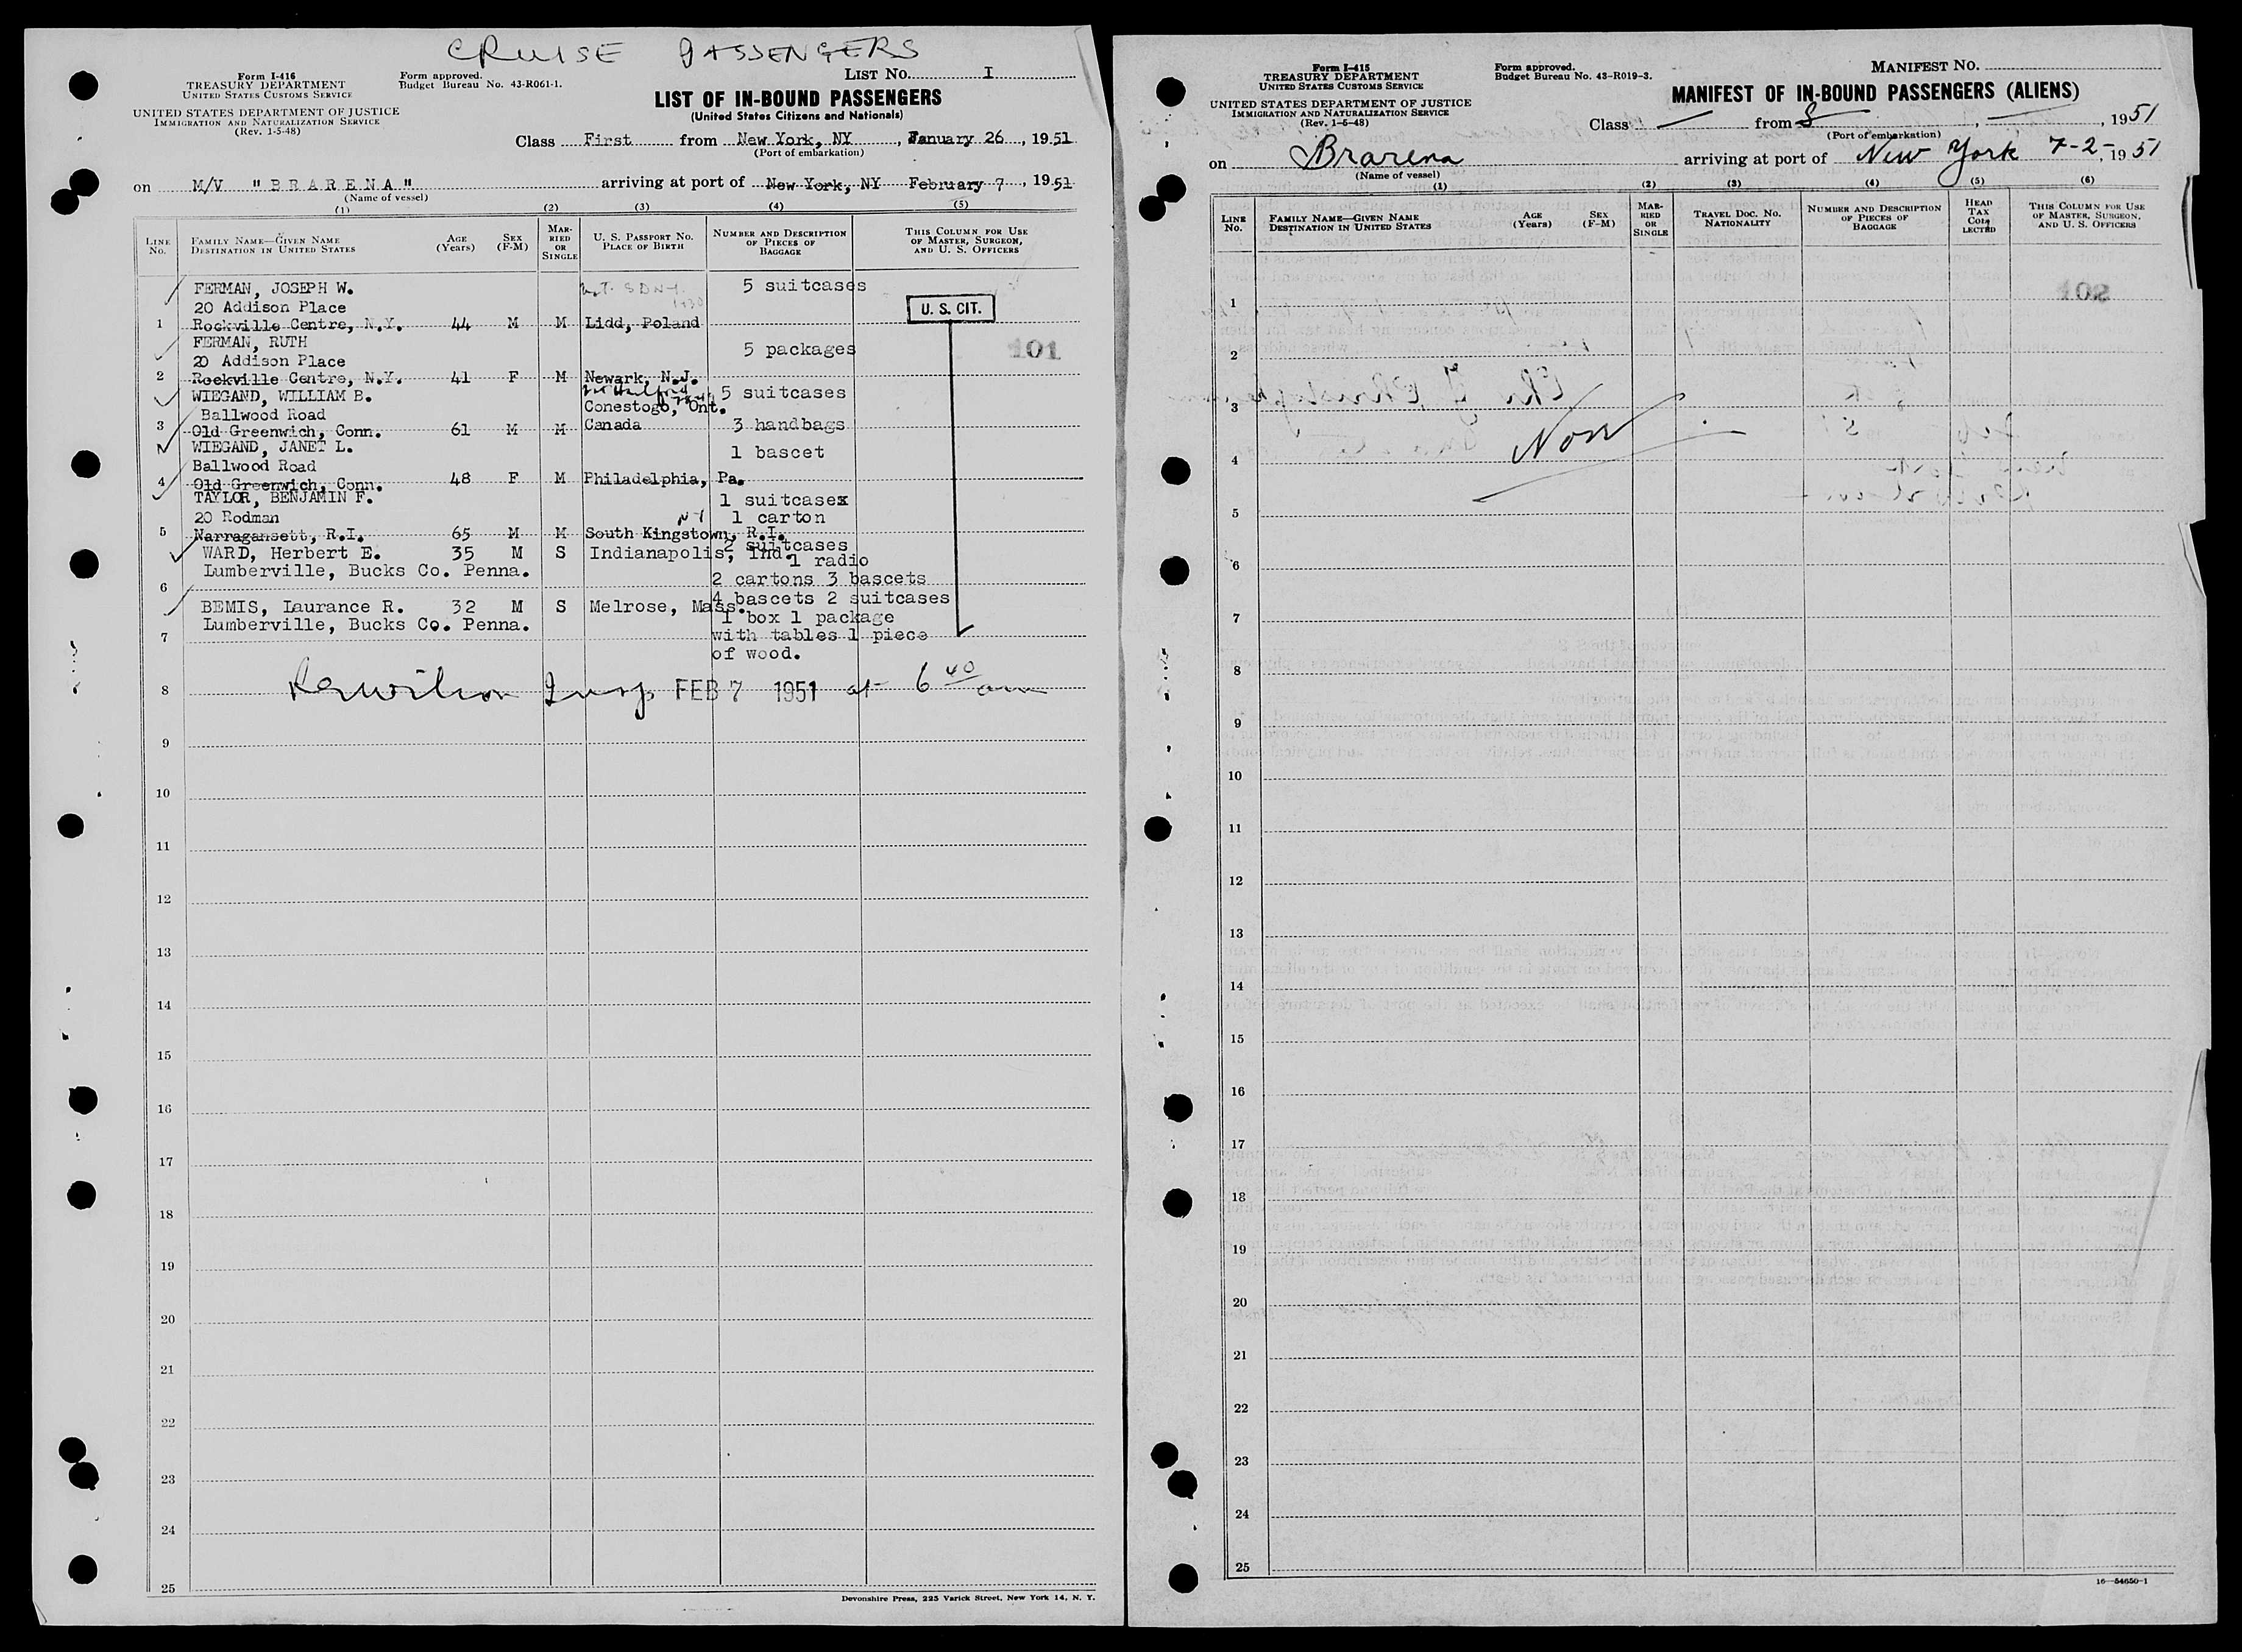 CRUISE PASSENGERS
Form I-416
TREASURY DEPARTMENT
UNITED STATES CUSTOMS SERVICE
UNITED STATES DEPARTMENT OF JUSTICE
IMMIGRATION AND NATURALIZATION SERVICE
(Rev. 1-5-48)
Form approved.
Budget Bureau No. 43-R061-1.
LIST No. I
LIST OF IN-BOUND PASSENGERS
(United States Citizens and Nationals)
Class First from New York, NY, January 26, 1951
(Port of embarkation)
on M/V "BRARENA" arriving at port of New York, NY February 7, 1951
(Name of vessel)
(1) (2) (3) (4) (5)
LINE No.
FAMILY NAME—GIVEN NAME
DESTINATION IN UNITED STATES
AGE (Years)
SEX (F-M)
MARRIED OR SINGLE
U. S. PASSPORT NO.
PLACE OF BIRTH
NUMBER AND DESCRIPTION OF PIECES OF BAGGAGE
THIS COLUMN FOR USE OF MASTER, SURGEON, AND U. S. OFFICERS
FERMAN, JOSEPH W. 5 suitcases
20 Addison Place
U. S. CIT.
1 Rockville Centre, N.Y. 44 M M Lidd, Poland
FERMAN, RUTH
5 packages
101
20 Addison Place
2 Rockville Centre, N.Y. 41 F M Newark, N.J.
WIEGAND, WILLIAM B. 5 suitcases
Ballwood Road Conestogo, Ont.
3 Old Greenwich, Conn. 61 M M Canada 3 handbags
WIEGAND, JANET L. 1 bascet
Ballwood Road
4 Old Greenwich, Conn. 48 F M Philadelphia, Pa.
TAYLOR, BENJAMIN F. 1 suitcasex
20 Rodman 1 carton
5 Narragansett, R.I. 65 M M South Kingstown, R.I.
2 suitcases
WARD, Herbert E. 35 M S Indianapolis, Ind. 1 radio
Lumberville, Bucks Co. Penna.
6 2 cartons 3 bascets
4 bascets 2 suitcases
BEMIS, Laurance R. 32 M S Melrose, Mass.
1 box 1 package
Lumberville, Bucks Co. Penna.
7 with tables 1 piece
of wood.
8 Insp. FEB 7 1951 at 6 40 am
9
10
11
12
13
14
15
16
17
18
19
20
21
22
23
24
25
Devonshire Press, 225 Varick Street, New York 14, N. Y.
Form I-415
TREASURY DEPARTMENT
UNITED STATES CUSTOMS SERVICE
UNITED STATES DEPARTMENT OF JUSTICE
IMMIGRATION AND NATURALIZATION SERVICE
(Rev. 1-5-48)
Form approved.
Budget Bureau No. 43-R019-3.
MANIFEST No.
MANIFEST OF IN-BOUND PASSENGERS (ALIENS)
Class from , 1951
(Port of embarkation)
on Brarena arriving at port of New York 7-2-, 1951
(Name of vessel)
(1) (2) (3) (4) (5) (6)
LINE No.
FAMILY NAME—GIVEN NAME
DESTINATION IN UNITED STATES
AGE (Years)
SEX (F-M)
MARRIED OR SINGLE
TRAVEL DOC. NO.
NATIONALITY
NUMBER AND DESCRIPTION OF PIECES OF BAGGAGE
HEAD TAX COLLECTED
THIS COLUMN FOR USE OF MASTER, SURGEON, AND U. S. OFFICERS
102
1
2
3
4
5
6
7
8
9
10
11
12
13
14
15
16
17
18
19
20
21
22
23
24
25
16—54650-1